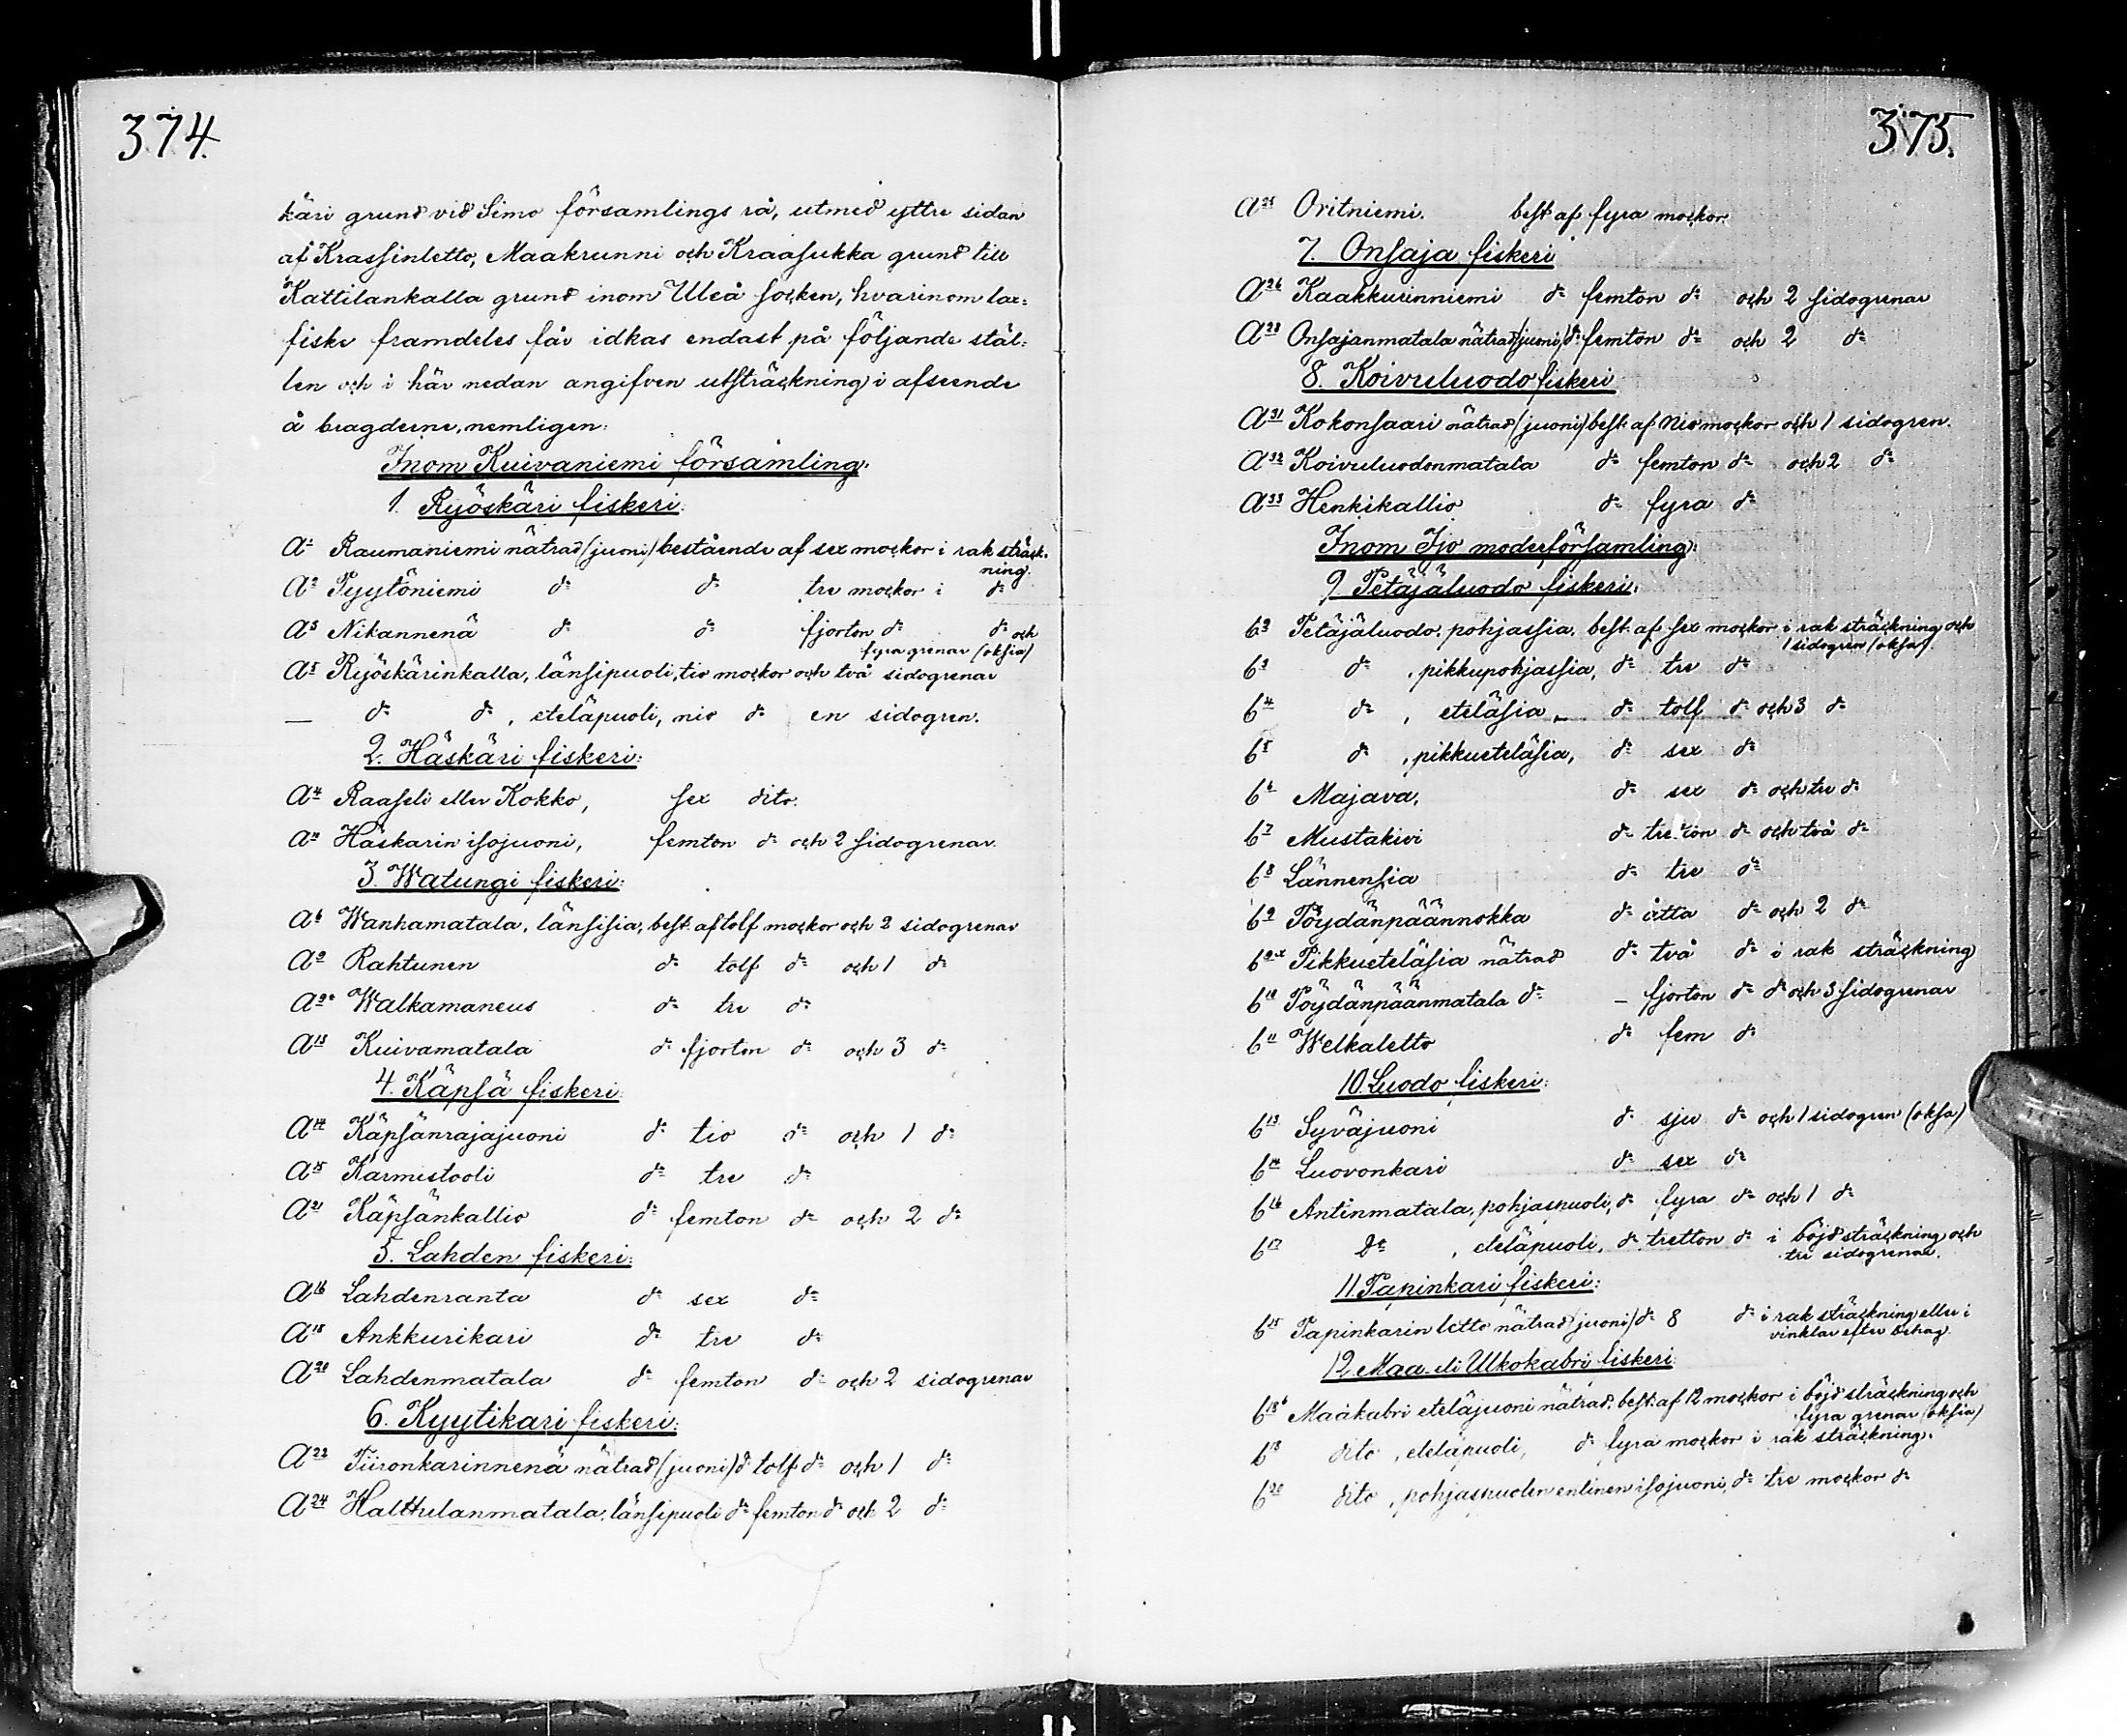 374.
käri grund vid Simo församlings rå, utmed yttre sidan
af Krassinletto, Maakrunni och Kraasukka grund till
Kattilankalla grund inom Uleå socken, hvarinom lax=
fiske framdeles får idkas endast på följande stäl=
len och i här nedan angifven utsträckning i afseende
å bragderne, nemligen:
Inom Kuivaniemi församling:
1. Ryöskäri fiskeri:
a= Raumaniemi nätrad (juoni) bestående af sex mockor i rak sträck=
ning.
a2 Tyytöniemi d:o d:o tre mockor i d:o
a3 Nikannenä d:o d:o fjorton d:o d:o och
fyra grenar (oksia)
a5 Ryöskärinkalla, länsipuoli, tio mockor och två sidogrenar
— d:o d:o, eteläpuoli, nio d:o en sidogren.
2. Häskäri fiskeri:
a4 Raaseli eller Kokko, sex dito.
a Häskarin isojuoni, femton d:o och 2 sidogrenar.
3. Watungi fiskeri:
a6 Wanhamatala, länsisia, best. af tolf mockor och 2 sidogrenar
a9 Rahtunen d:o tolf d:o och 1 d:o
a9 Walkamaneus d:o tre d:o
a13 Kuivamatala d:o fjorton d:o och 3 d:o
4. Käpsä fiskeri:
a14 Käpsänrajajuoni d:o tio d:o och 1 d:o
a15 Karmistooli d:o tre d:o
a21 Käpsänkallio d:o femton d:o och 2 d:o
5. Lahden fiskeri:
a16 Lahdenranta d:o sex d:o
a18 Ankkurikari d:o tre d:o
a20 Lahdenmatala d:o femton d:o och 2 sidogrenar
6. Kyytikari fiskeri:
a23 Tiironkarinnenä nätrad (juoni) d:o tolf d:o och 1 d:o
a24 Halttulanmatala, länsipuoli d:o femton d:o och 2 d:o
375.
a25 Oritniemi. best. af fyra mockor.
7. Onsaja fiskeri
a26 Kaakkurinniemi d:o femton d:o och 2 sidogrenar
a28 Onsajanmatala nätrad (juoni) d:o femton d:o och 2 d:o
8. Koivuluodo fiskeri
a31 Kokonsaari nätrad (juoni) best. af nio mockor och 1 sidogren.
a32 Koivuluodonmatala d:o femton d:o och 2 d:o
a33 Henkikallio d:o fyra d:o
Inom Ijo moderförsamling:
9. Petäjäluodo fiskeri:
b2 Petäjäluodo, pohjassia, best. af sex mockor i rak sträckning och
1 sidogren (oksa).
b3 d:o, pikkupohjassia, d:o tre d:o
b4 d:o, eteläsia, d:o tolf d:o och 3 d:o
b5 d:o, pikkueteläsia, d:o sex d:o
b6 Majava, d:o sex d:o och tre d:o
b7 Mustakivi d:o tretton d:o och två d:o
b8 Lännensia d:o tre d:o
b9 Pöydänpäännokka d:o åtta d:o och 2 d:o
b9x Pikkueteläsia nätrad d:o två d:o i rak sträckning
b10 Pöydänpäänmatala d:o — fjorton d:o d:o och 3 sidogrenar
b11 Welkaletto d:o fem d:o
10. Luodo fiskeri:
b13 Syväjuoni d:o sju d:o och 1 sidogren (oksa)
b14 Luovonkari d:o sex d:o
b16 Antinmatala, pohjaspuoli, d:o fyra d:o och 1 d:o
b17 D:o, eteläpuoli, d:o tretton d:o i böjd sträckning och
tre sidogrenar.
11. Papinkari fiskeri:
b15 Papinkarin letto nätrad (juoni) d:o 8 d:o i rak sträckning eller i
vinklar efter behag.
12. Maa- eli Ulkokabri fiskeri
b18 Maakabri eteläjuoni nätrad, best. af 12 mockor i böjd sträckning och
fyra grenar (oksia)
b18 dito, eteläpuoli, d:o fyra mockor i rak sträckning.
b20 dito, pohjaspuolen entinen isojuoni, d:o tre mockor d:o